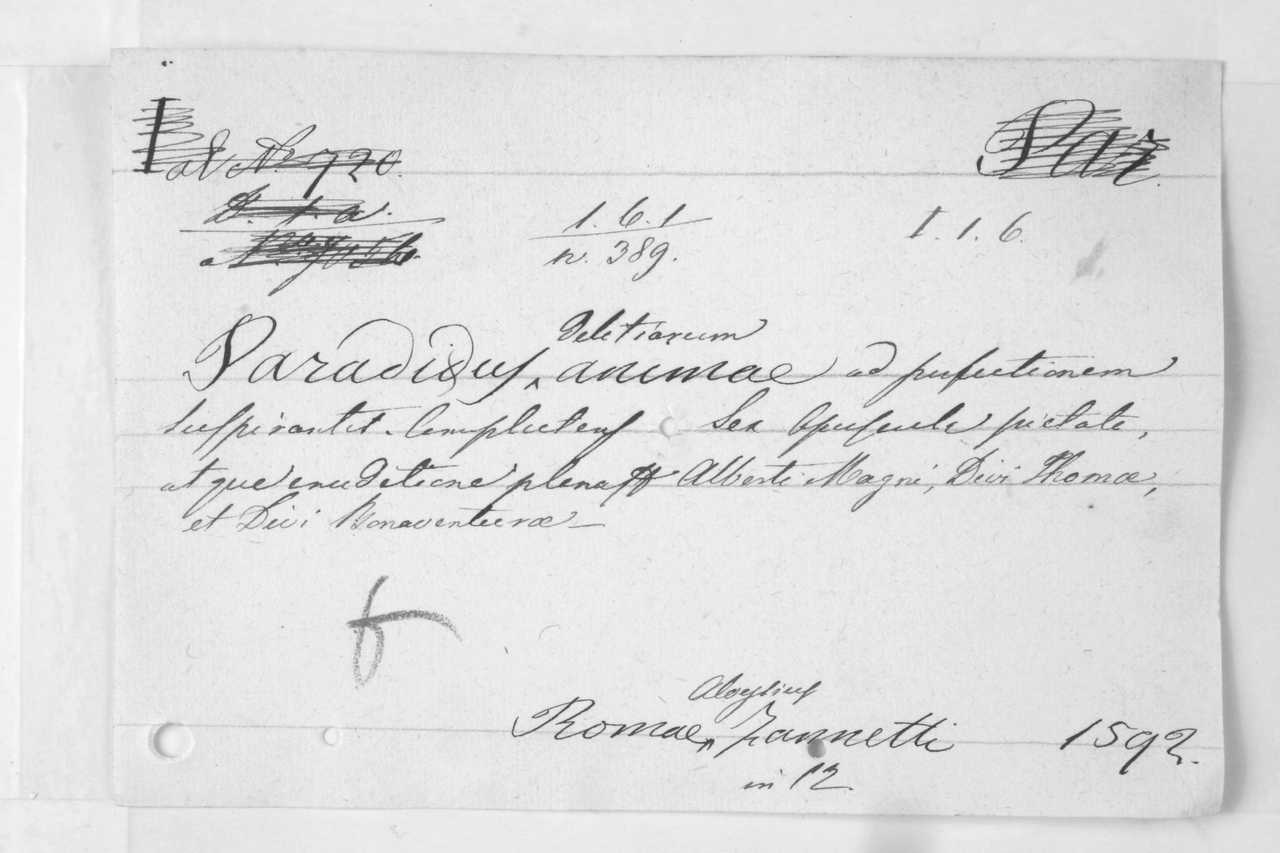 ad Nr 720. Par
1. 6. 1 I. 1. 6.
n. 389.
delitiarum
Paradisus animae ad perfectionem
suspirantis. Complectens Sex Opuscula pietate,
atque eruditione plena Alberti Magni, Divi Thomae,
et Divi Bonaventurae —
f
Aloysius
Romae, Zannetti 1592.
in 12